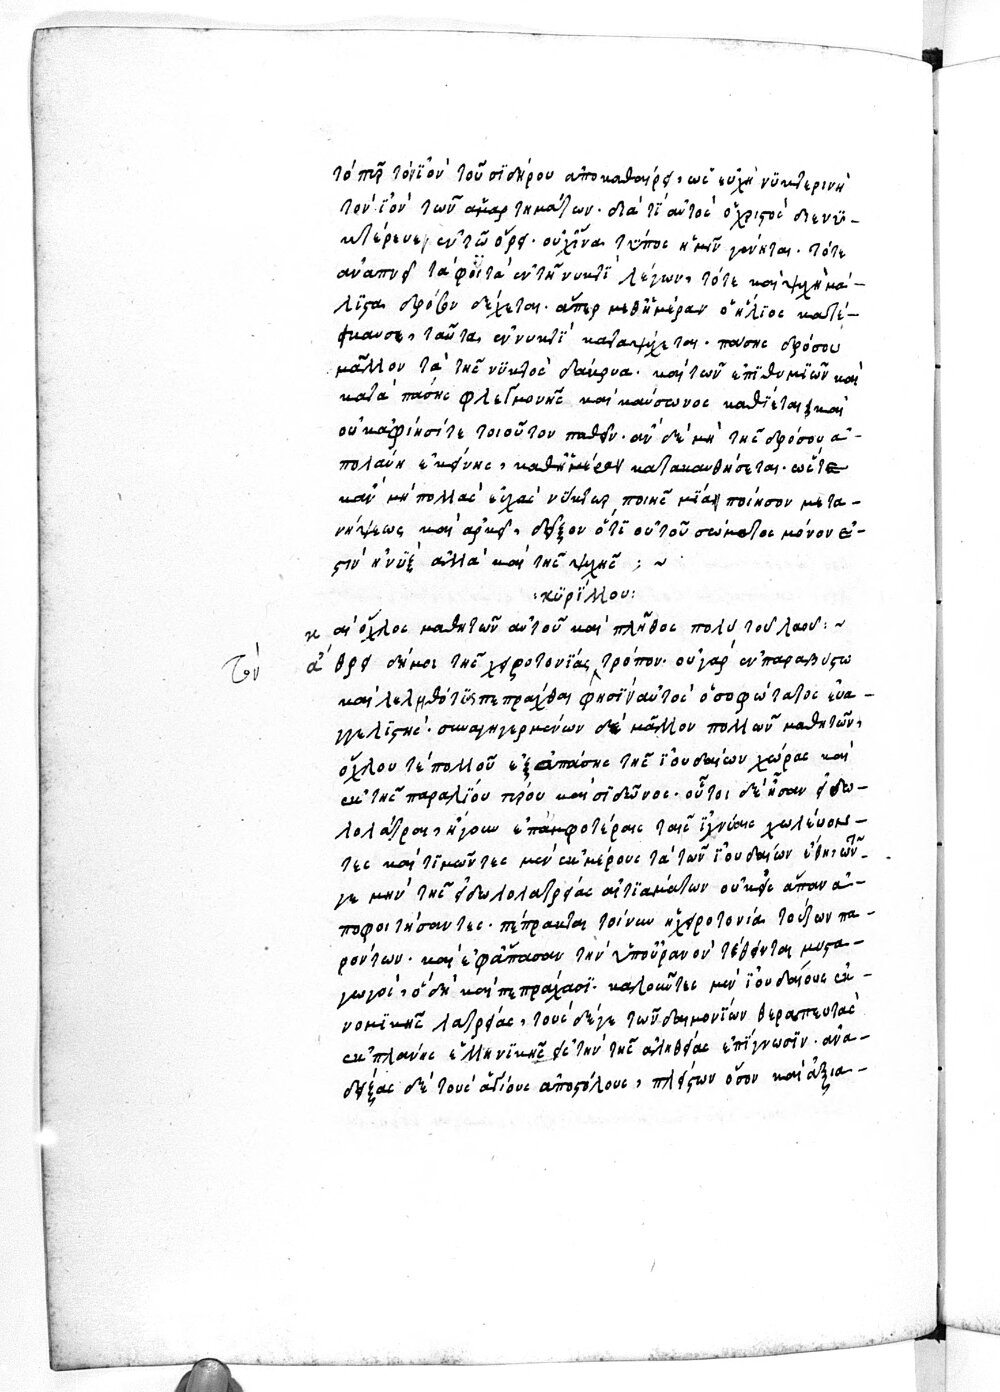 τὸ πῦρ τὸν ἰὸν τοῦ σϊδήρου ἀποκαθαίρει, ὡς εὐχὴ νϋκτερινὴ
τὸν ἰὸν τῶν ἁμαρτημάτων. διὰ τί αὐτὸς ὁ χριστὸς διενϋ-
κτέρευεν ἐν τῷ ὄρει. οὐχ ἵνα τύπος ἡμῖν γένηται. τότε
ἀναπνεῖ τὰ φϋτὰ ἐν τῆ νυκτὶ λέγων, τότε καὶ ψυχὴ μά-
λϊστα δρόσον δέχεται. ἅπερ μεθημέραν ὁ ἥλϊος κατέ-
φκαυσε, ταῦτα ἐν νυκτὶ καταψύχεται. πάσης δρόσου
μᾶλλον τὰ τῆς νϋκτὸς δάκρυα. καὶ τῶν ἐπϊθυμϊῶν καὶ
κατὰ πάσης φλεγμονῆς καὶ καύσωνος καθϊεται, καὶ
οὐκ ἀφίησί τε τοιοῦτον παθεῖν. ἂν δὲ μὴ τῆς δρόσου ἀ-
πολαύη ἐκείνης, καθημέραν κατακαυθήσεται. ὥστε
κἂν μὴ πολλὰς εὐχὰς νϋκτὸς ποιῆς μίαν ποίησον μετα-
νήψεως καὶ ἀρκεῖ, δεῖξον ὅτι οὐ τοῦ σώματος μόνον ἐ-
στὶν ἡ νὺξ ἀλλὰ καὶ τῆς ψυχῆς ; ~
:κϋρϊλλου:
κ αὶ ὄχλος μαθητῶν αὐτοῦ καὶ πλῆθος πολὺ τοῦ λαοῦ: ~
τὸν
ἄ θρει δή μοι τῆς χειροτονίας τρόπον. οὐ γὰρ ἐν παραβύστω
καὶ λεληθότως πεπράχθαι φησὶν αὐτὸς ὁ σοφώτατος εὐα-
γγελϊστής. συναγηγερμένων δὲ μᾶλλον πολλῶν μαθητῶν,
ὄχλου τὲ πολλοῦ ἐξ ἁπάσης τῆς ἰουδαίων χώρας καὶ
ἐκ τῆς παραλϊου τύρου καὶ σϊδῶνος. οὗτοι δὲ ἦσαν εἰδω-
λολάτραι, ἤγουν ἐπαμφοτέραις ταῖς ἰγνύαις χωλεύον-
τες καὶ τϊμῶντες μὲν ἐκ μέρους τὰ τῶν ἰουδαίων ἔθη, τῶν
γε μὴν τῆς εἰδωλολατρείας αἰτϊαμάτων οὐκ εἰς ἅπαν ἀ-
ποφοιτήσαντες. πέπρακται τοίνυν ἡ χειροτονία τούτων πα-
ρόντων. καὶ ἐφ ἅπασαν τὴν ὑπουρανὸν τέθεινται μυστα-
γωγοί, ὃ δὴ καὶ πεπράχασϊ. καλοῦντες μὲν ἰουδαίους ἐκ
νομϊκῆς λατρείας, τοὺς δέ γε τῶν δαιμονίων θεραπευτὰς
ἐκ πλάνης ἑλληνϊκῆς εἰς τὴν τῆς ἀληθείας ἐπϊγνωσϊν. ἀνα-
δείξας δὲ τοὺς ἁγίους ἀποστόλους, πλείστων ὅσον καὶ ἀξια-